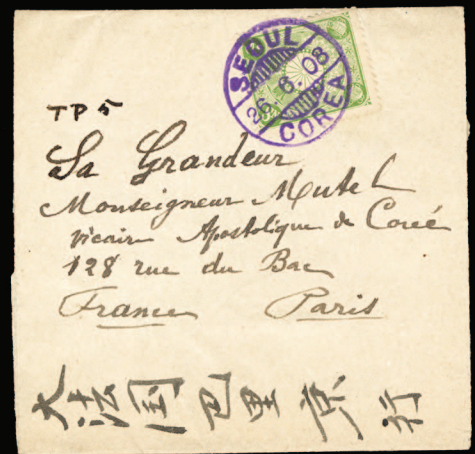 SEOUL
26. 6. 08
COREA
TP 5
Sa Grandeur
Monseigneur Mutel
vicaire Apostolique de Corée
128 rue du Bac
France Paris
大法國巴里京行